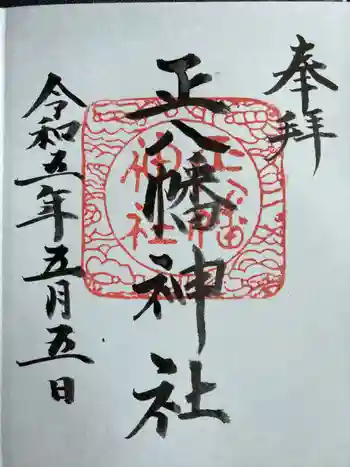 奉拝
正八幡神社
正八幡
神社
令和五年五月五日